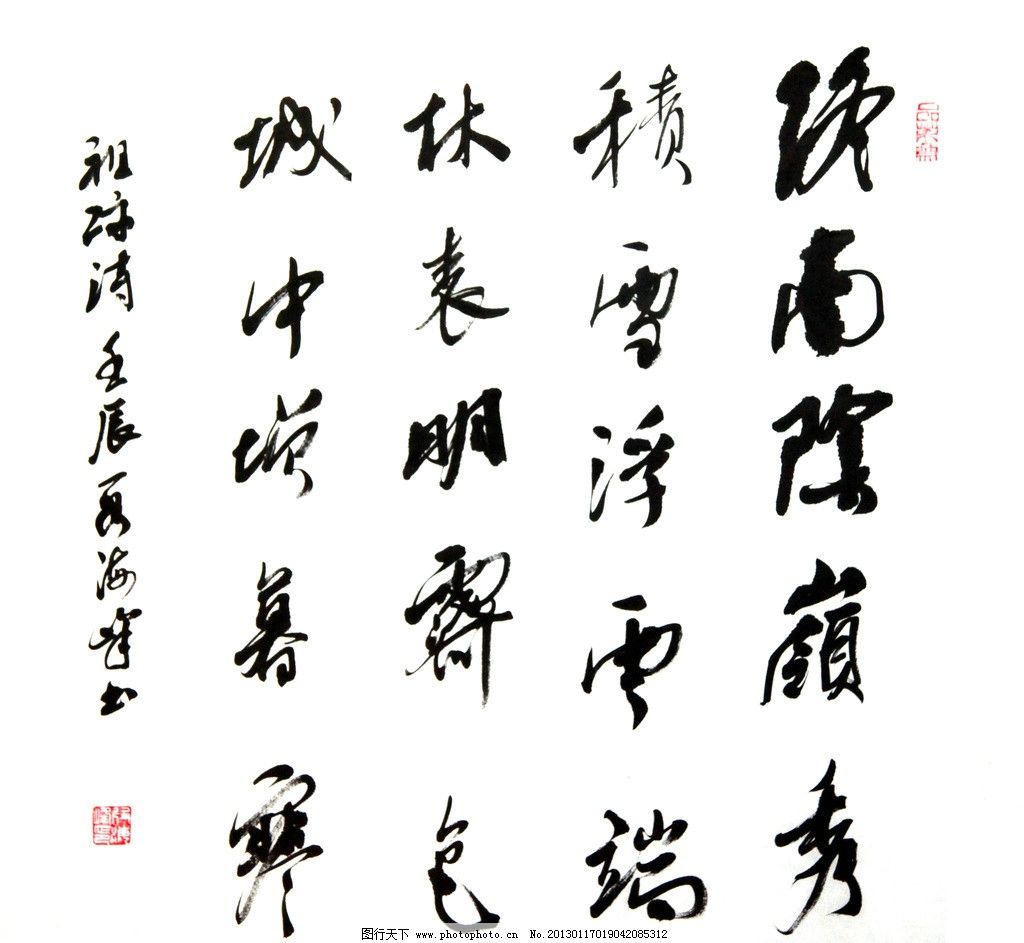 終南陰嶺秀
積雪浮雲端
林表明霽色
城中增暮寒
祖詠詩 壬辰夏海峰書
图行天下 www.photophoto.cn No.20130117019042085312